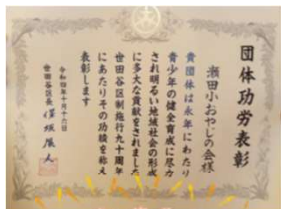 団体功労表彰
瀬田小おやじの会様
貴団体は永年にわたり
青少年の健全育成に尽力
され明るい地域社会の形成
に多大な貢献をされました
世田谷区制施行九十周年
にあたりその功績を称え
表彰します
令和四年十月十六日
世田谷区長 保坂展人